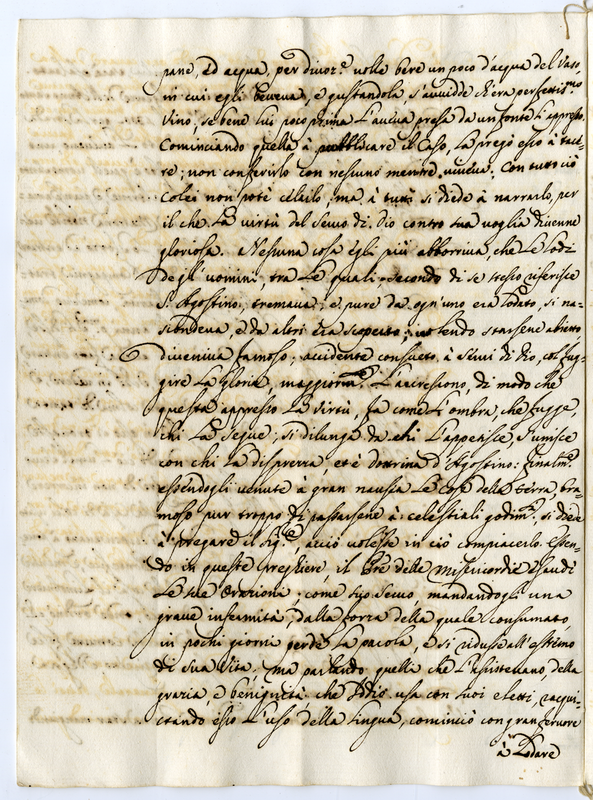 pane, ed acqua, per divoz.e volle bere un poco d'acqua del Vaso,
in cui egli beveva, e gustandola s'avvidde ch'era perfettis.mo
Vino, se bene lui poco prima l'aveva presa da un fonte lì appresso.
Cominciando quella à pubblicare il Caso, la pregò esso à tace-
re; non conferirlo con nessuno mentre viveva; Con tutto ciò
Colei non potè celarlo, ma à tutti si diede à narrarlo, per
il che la virtù del Servo di Dio contro sua voglia divenne
gloriosa. Nessuna cosa egli più abborriva, che le lodi
degl'uomini, tra le quali, secondo di se stesso riferisce
S. Agostino, tremava; e pure da ogn'uno era lodato, si na-
scondeva, e da altri era scoperto; volendo starsene abietto,
diveniva famoso; accidente consueto à Servi di Dio, col fug-
gire la Gloria, l'accrescono, di modo che
questa appresso la virtù, fa come l'ombra, che fugge,
chi la segue; si dilunga da chi l'appetisce, s'unisce
con chi la disprezza, et è dottrina d'Agostino: finalm.e
essendogli venute à gran nausea le cose della terra, bra-
moso pur troppo di passarsene à celestiali godim.ti, si diede
à pregare il Sig.e, acciò volesse in ciò compiacerlo. Essen-
do in queste preghiere, il Pre delle Misericordie esaudì
le sue Orazioni; come suo Servo mandandogli una
grave infermità, dalla forza della quale consumato,
in pochi giorni perdè la parola, e si ridusse all'estremo
di sua vita, ma parlando quelli che l'assistevano, della
grazia, e benignità che Iddio usa con suoi eletti, racqui-
stando esso l'uso della lingua, cominciò con gran fervore
à lodare